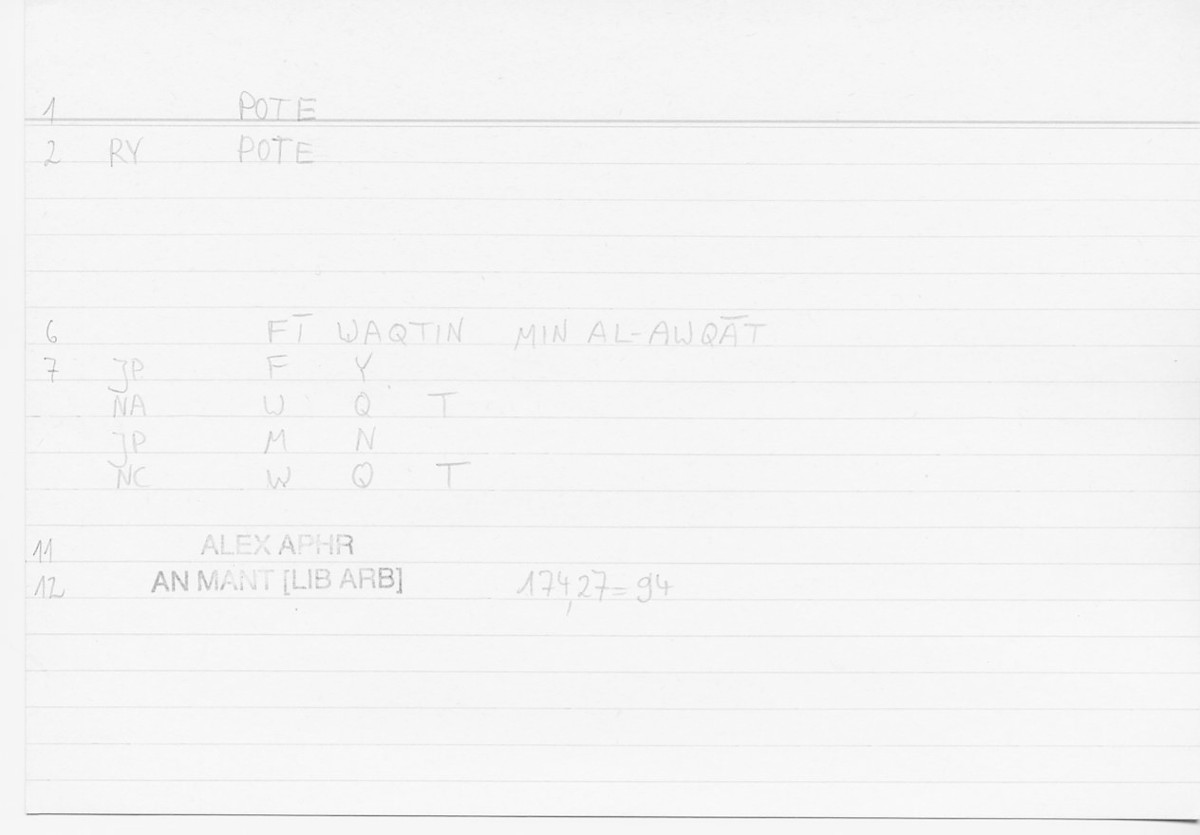 1 POTE
2 RY POTE
6 FĪ WAQTIN MIN AL-AWQĀT
7 JP F Y
NA W Q T
JP M N
NC W Q T
11 ALEX APHR
12 AN MANT [LIB ARB] 174,27=94